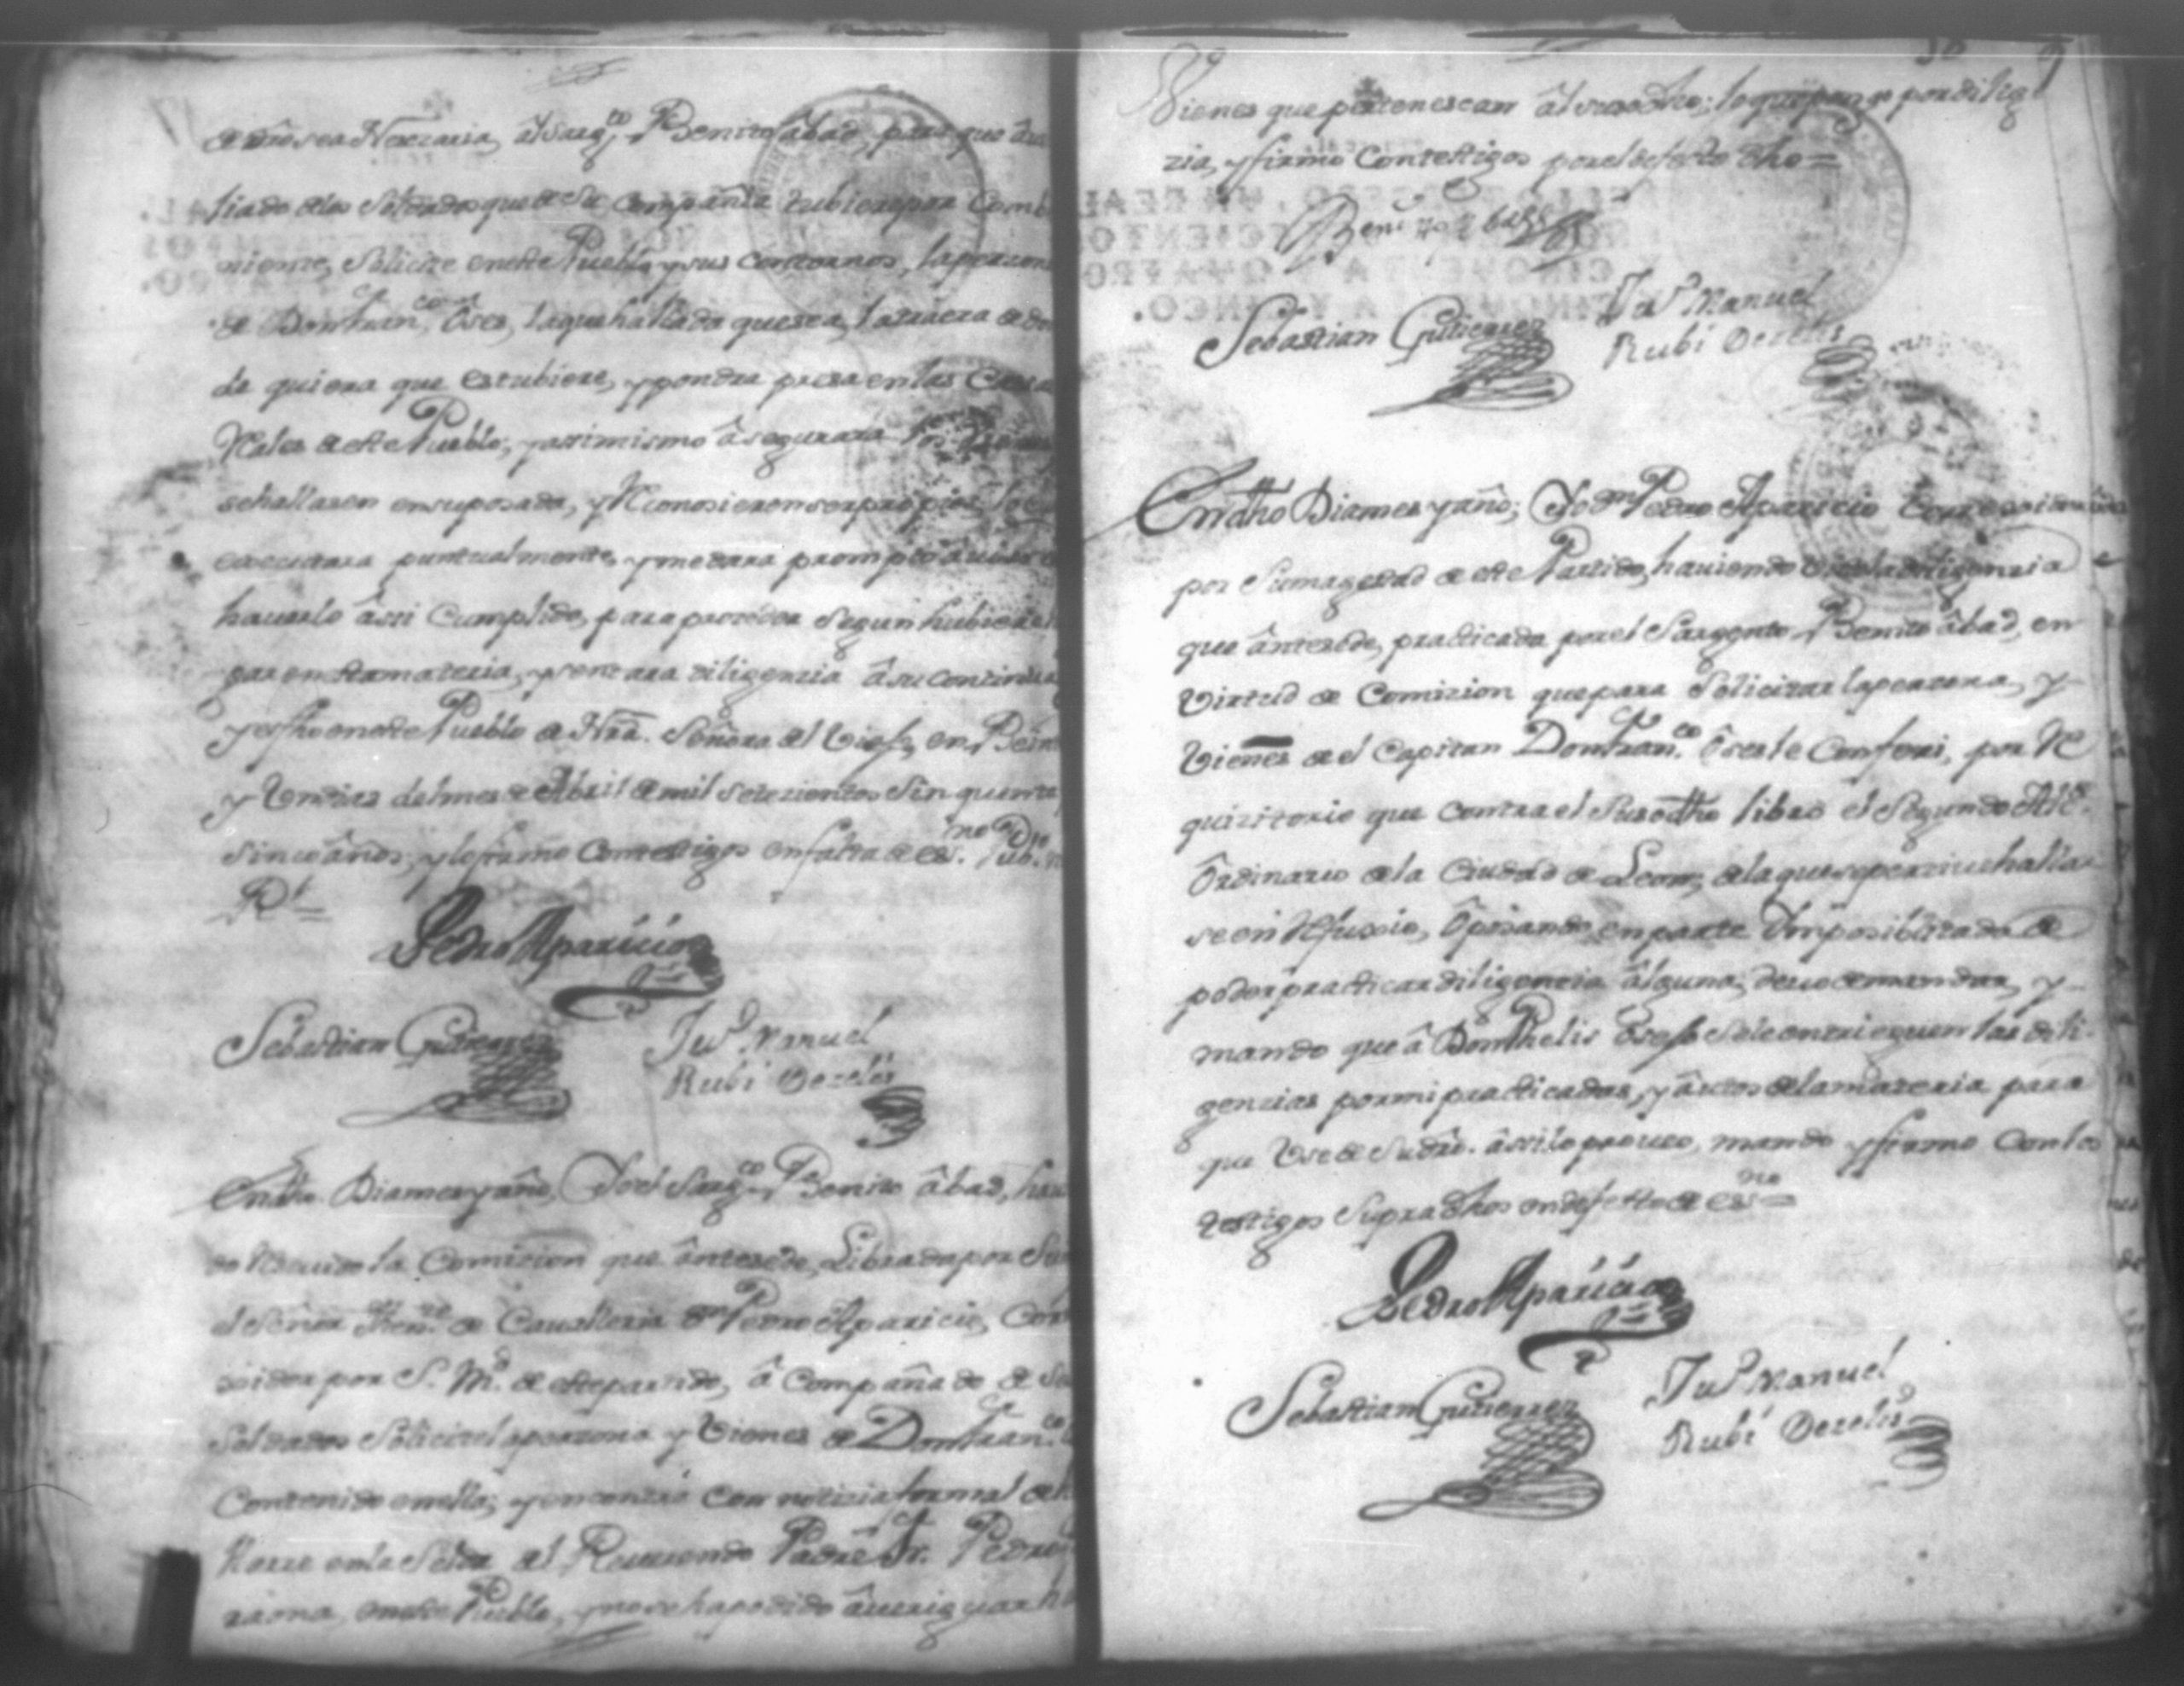 sea Nesezaria, âl Sarg.to Benito âbad, para que âu
liado de los Soldados que de Su Compañia tubiere por Comb
niente, Solicite en este Pueblo y sus Contornos, la perzona
de Don Fran.co Ôses, la qual hallada que sea, la sacara de don
de quiera que estubiere, y pondra presa en las Casas
Reales de este Pueblo, y assimismo âsegurara los Vienes
se hallasen en su posada, y Reconosieren ser propios
executara puntualmente, y me dara prompto aviso
haverlo âssi Cumplido, para proceder Segun hubiere
gar en esta materia, y sentara diligenzia â su continua
y es fho en este Pueblo de Nra. Señora del Viejo, en Beint
y Un dias del mes de Abril de mil setezientos Sinquenta
Sinco años, y lo firmo Con testigos en falta de es.no Pub.co
R.l =
Pedro Aparicio
Sebastian Gutierrez
Ju.o Manuel
Rubi Dezelis
En dho. Dia mes y año, Yo el Sarg.to Benito âbad, havi
do Resevido la Comizion que ânteсede, Librada por
el Señor Then.te de Cavalleria D.n Pedro Aparicio, Corr
xidor por S. M.d de este partido, â Compañado de
Soldados Solicite la perzona y Vienes de Don Fran.co
Contenido en ella; y encontre Con notizia formal de h
llarse en la Selda del Reverendo Padre Fr. Pedro
en este Pueblo, y no se ha podido âveriguar
Vienes que pertenescan âl susodho; lo que pongo por dilig
zia, y firmo Con testigos por el defecto dho =
Benito Abad
Sebastian Gutierrez
Ju.o Manuel
Rubi Dezelis
En dho Dia mes y año; Yo D.n Pedro Aparicio Correxidor
por Su magestad de este Partido, haviendo visto la diligenzia
que ânteсede, practicada por el Sargento Benito âbad, en
Virtud de Comizion que para Solicitar la perzona, y
Vienes de el Capitan Don Fran.co Ôses le Conferi, por Re
quizitorio que Contra el Susodho libro el Segundo Alc.e
Ôrdinario de la Ciudad de Leon; de la que se perсive halla
se en Refuxio, Ôpinando en parte Ymposibilitado de
poder practicar diligenzia âlguna; devo de mandar, y
mando que â Don Phelis Ôsejo Se le entrieguen las dili
genzias por mi practicadas, y âutos de la materia para
que Vse de Su dro. âssi lo proveo, mando y firmo Con los
testigos Supradhos en defecto de es.no =
Pedro Aparicio
Sebastian Gutierrez
Ju.o Manuel
Rubi Dezelis